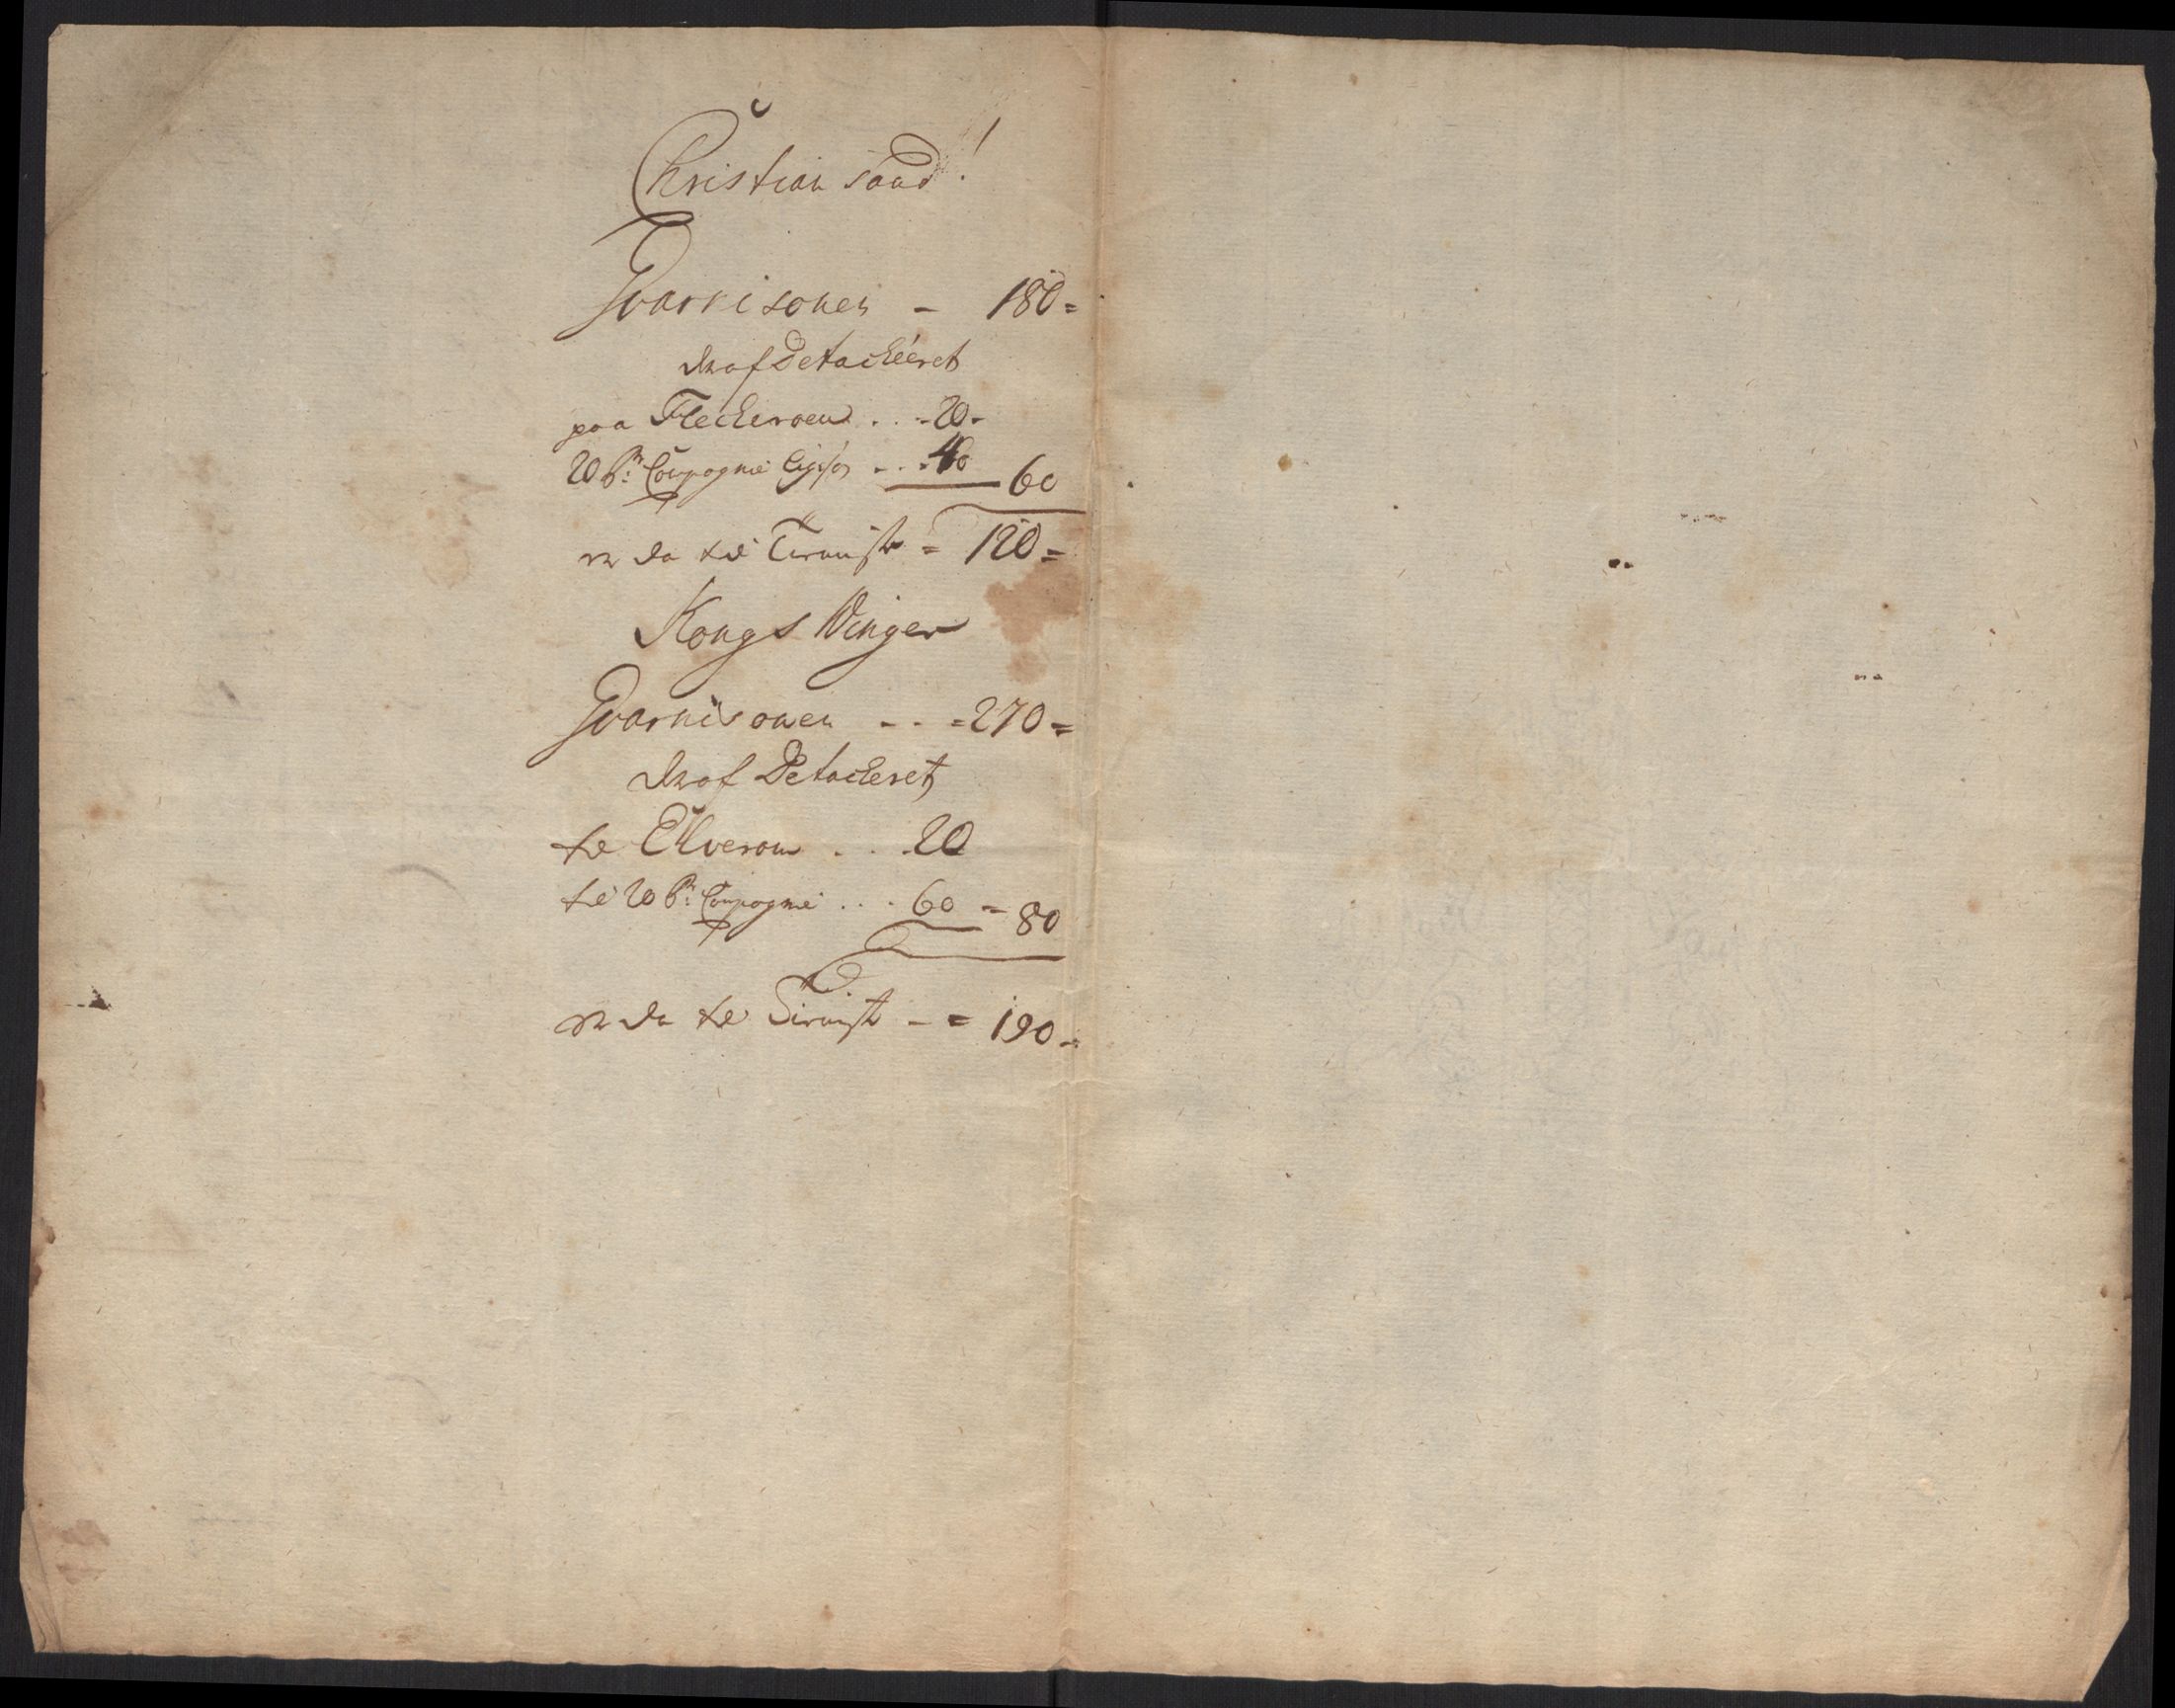 Christiansand!
Gvarnisonen - 180=
deraf Detacheeret
paa Fleckeroen . . -20-
20 Pr: Compagnie . . . 40 60
er da til Tienniste = 120=
Kongs Winger
Gvarnisonen - - =270=
deraf Detacheret
til Elverom . . . 20
til 20 Pr: Compagnie . . . 60 = 80
er da til Tienniste - = 190=